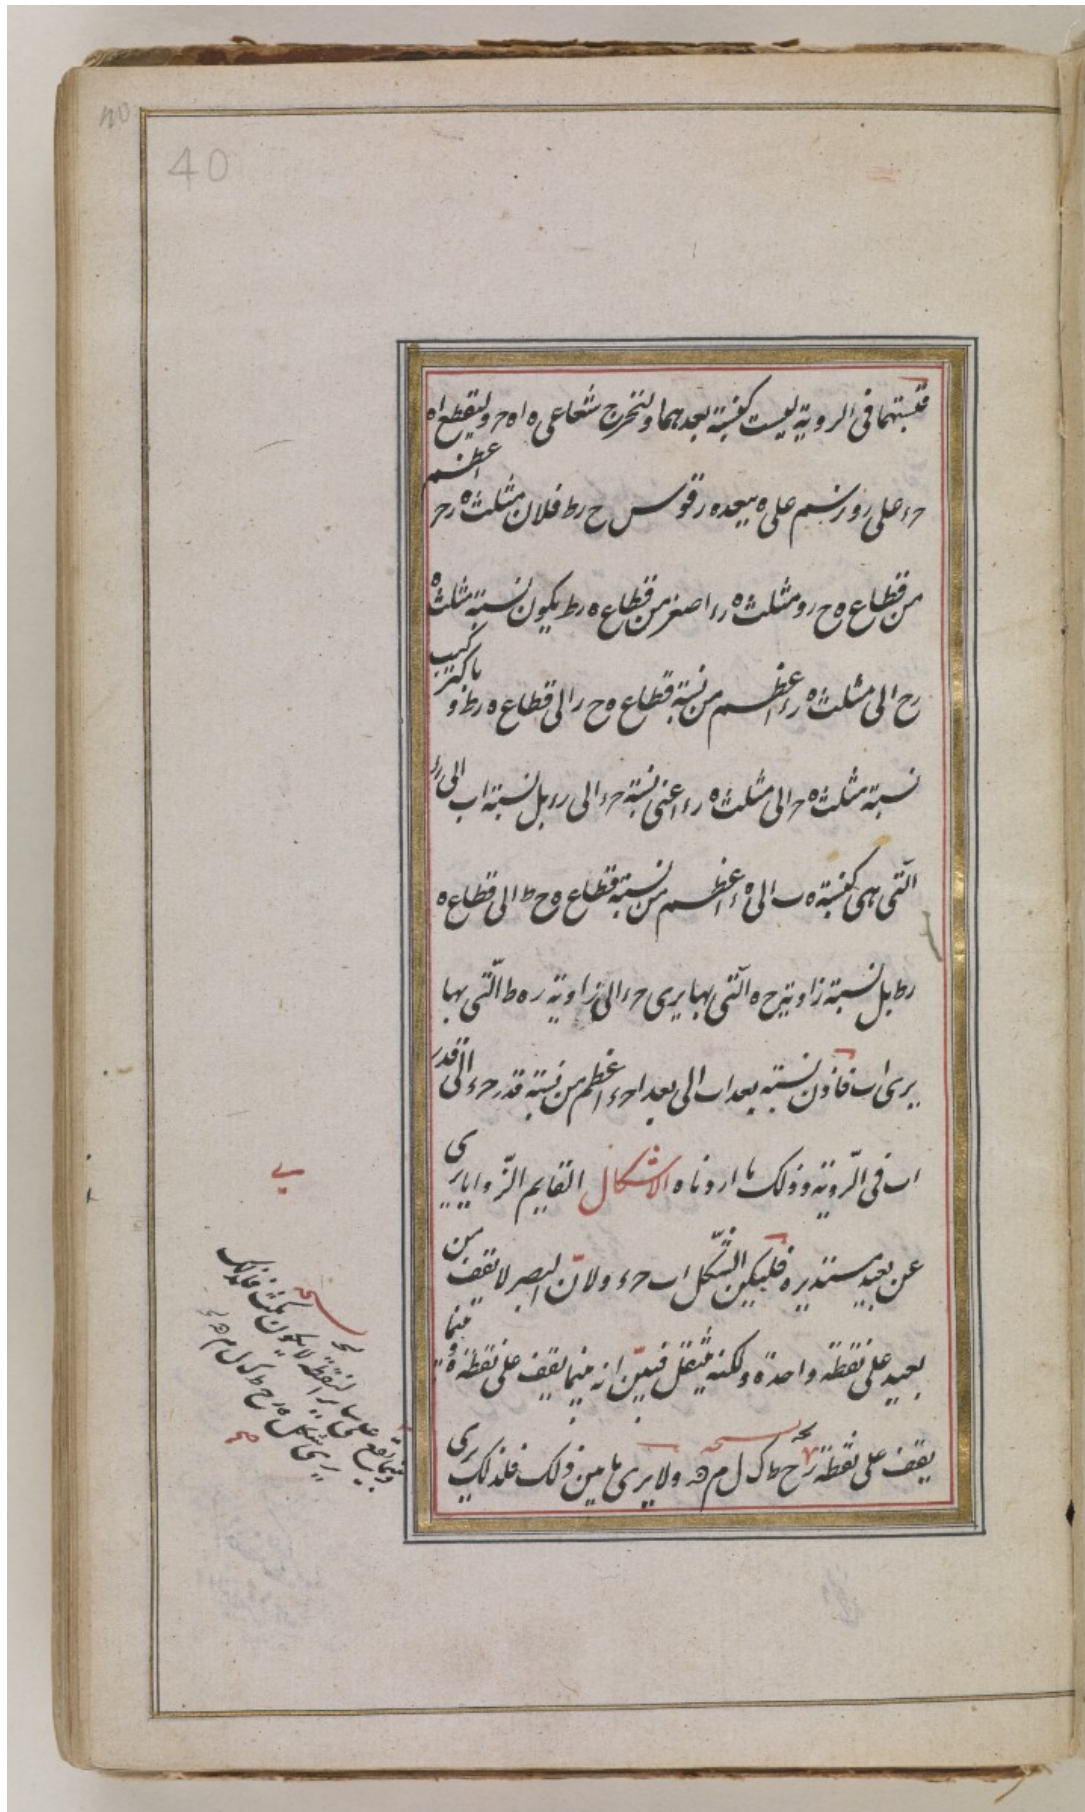 40
فنسبتهما فى الروية ليست كنسبة بعدهما ولنخرج شعاعى ه ا ه ح وليقطع ا ه
حء على ر ونرسم على ه ببعد ه ر قوس ح ر ط فلان مثلث ه ر ح اعظم
من قطاع ه ح ر و مثلث ه ر ء اصغر من قطاع ه ر ط يكون نسبة مثلث ه
ر ح الى مثلث ه ر ء اعظم من نسبة قطاع ه ح ر الى قطاع ه ر ط و بالتركيب
نسبة مثلث ه ح ء الى مثلث ه ر ء اعنى نسبة ح ء الى ر ء بل نسبة ا ب الى ر ء
الّتى هى كنسبة ه ب الى ه ء اعظم من نسبة قطاع ه ح ط الى قطاع ه
ر ط بل نسبة زاوية ح ه ء الّتى بها يرى ح ء الى زاوية ر ه ط الّتى بها
يرى ا ب فاذن نسبة بعد ا ب الى بعد ح ء اعظم من نسبة قدر ح ء الى قدر
ا ب فى الرّوية وذلك ما اردناه الاشكال القايم الزّوايا يرى
عن بعيد مستديره فليكن الشّكل ا ب ح ء ولانّ البصر لا يقف من
بعيد على نقطة واحدة ولكنه ينتقل فبيّن انه فيما يقف على نقطة ه وفيما
يقف على نقطة ر ح ط ك ل م ولا يرى ما بين ذلك فلذلك يرى
يب
وفيما يقع على ساير النقطة لا يكون يمكث فلذلك
يرى شكل ه ر ح ط ك ل م